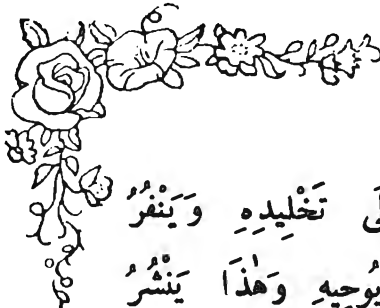 تَخْلِيدِهِ وَيَنْفُرُ
يُوحِيهِ وَهٰذَا يَنْشُرُ